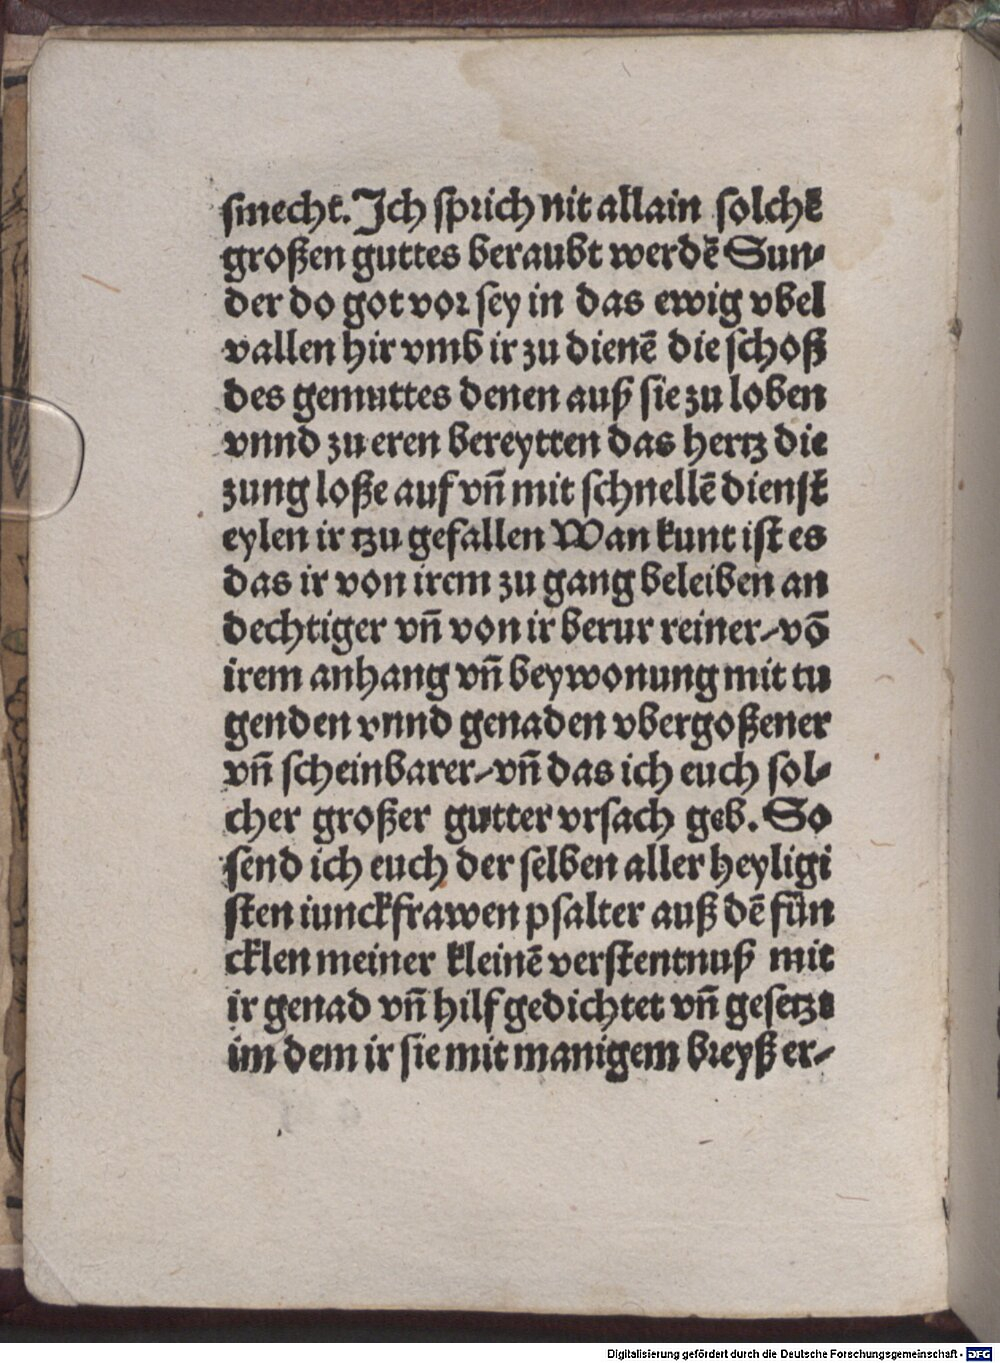 smecht. Ich sprich nit allain solchē
großen guttes beraubt werdē Sun-
der do got vor sey in das ewig vbel
vallen hir vmb ir zu dienē die schoß
des gemuttes denen auß sie zu loben
vnnd zu eren bereytten das hertz die
zung loße auf vñ mit schnellē dienst
eylen ir tzu gefallen Wan kunt ist es
das ir von irem zu gang beleiben an
dechtiger vñ von ir berur reiner-vō
irem anhang vñ beywonung mit tu
genden vnnd genaden vbergoßener
vñ scheinbarer-vñ das ich euch sol-
cher großer gutter vrsach geb. So
send ich euch der selben aller heyligi
sten iunckfrawen psalter auß dē fün
cklen meiner kleinē verstentnuß mit
ir genad vñ hilf gedichtet vñ gesetzt
im dem ir sie mit manigem breyß er-
Digitalisierung gefördert durch die Deutsche Forschungsgemeinschaft - DFG